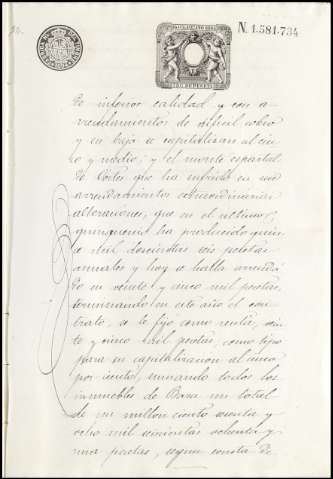 N. 1.581.734
de inferior calidad y con a-
rrendamientos de dificil cobro
y en baja se capitalizan al cin-
co y medio; y el monte espartal
de Cortés que ha sufrido en sus
arrendamientos extraordinarias
alteraciones, que en el ultimo
quinquenio ha producido quin-
ce mil doscientas seis pesetas
anuales y hoy se halla arrenda-
do en veinte y cinco mil pesetas,
terminando en este año el con-
trato, se le fijó como renta, vein-
te y cinco mil pesetas, como tipo
para su capitalizacion al cinco
por ciento, sumando todos los
inmuebles de Baza un total
de un millon ciento sesenta y
ocho mil seiscientas ochenta y
una pesetas, segun consta de